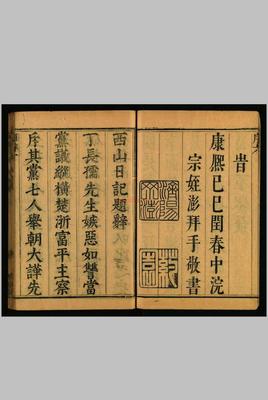 旹
康熈己巳閏春中浣
宗姪澎拜手敬書
西山日記題辭
丁長孺先生嫉惡如讐當
黨議縱橫楚浙富平主察
斥其黨七人舉朝大譁先